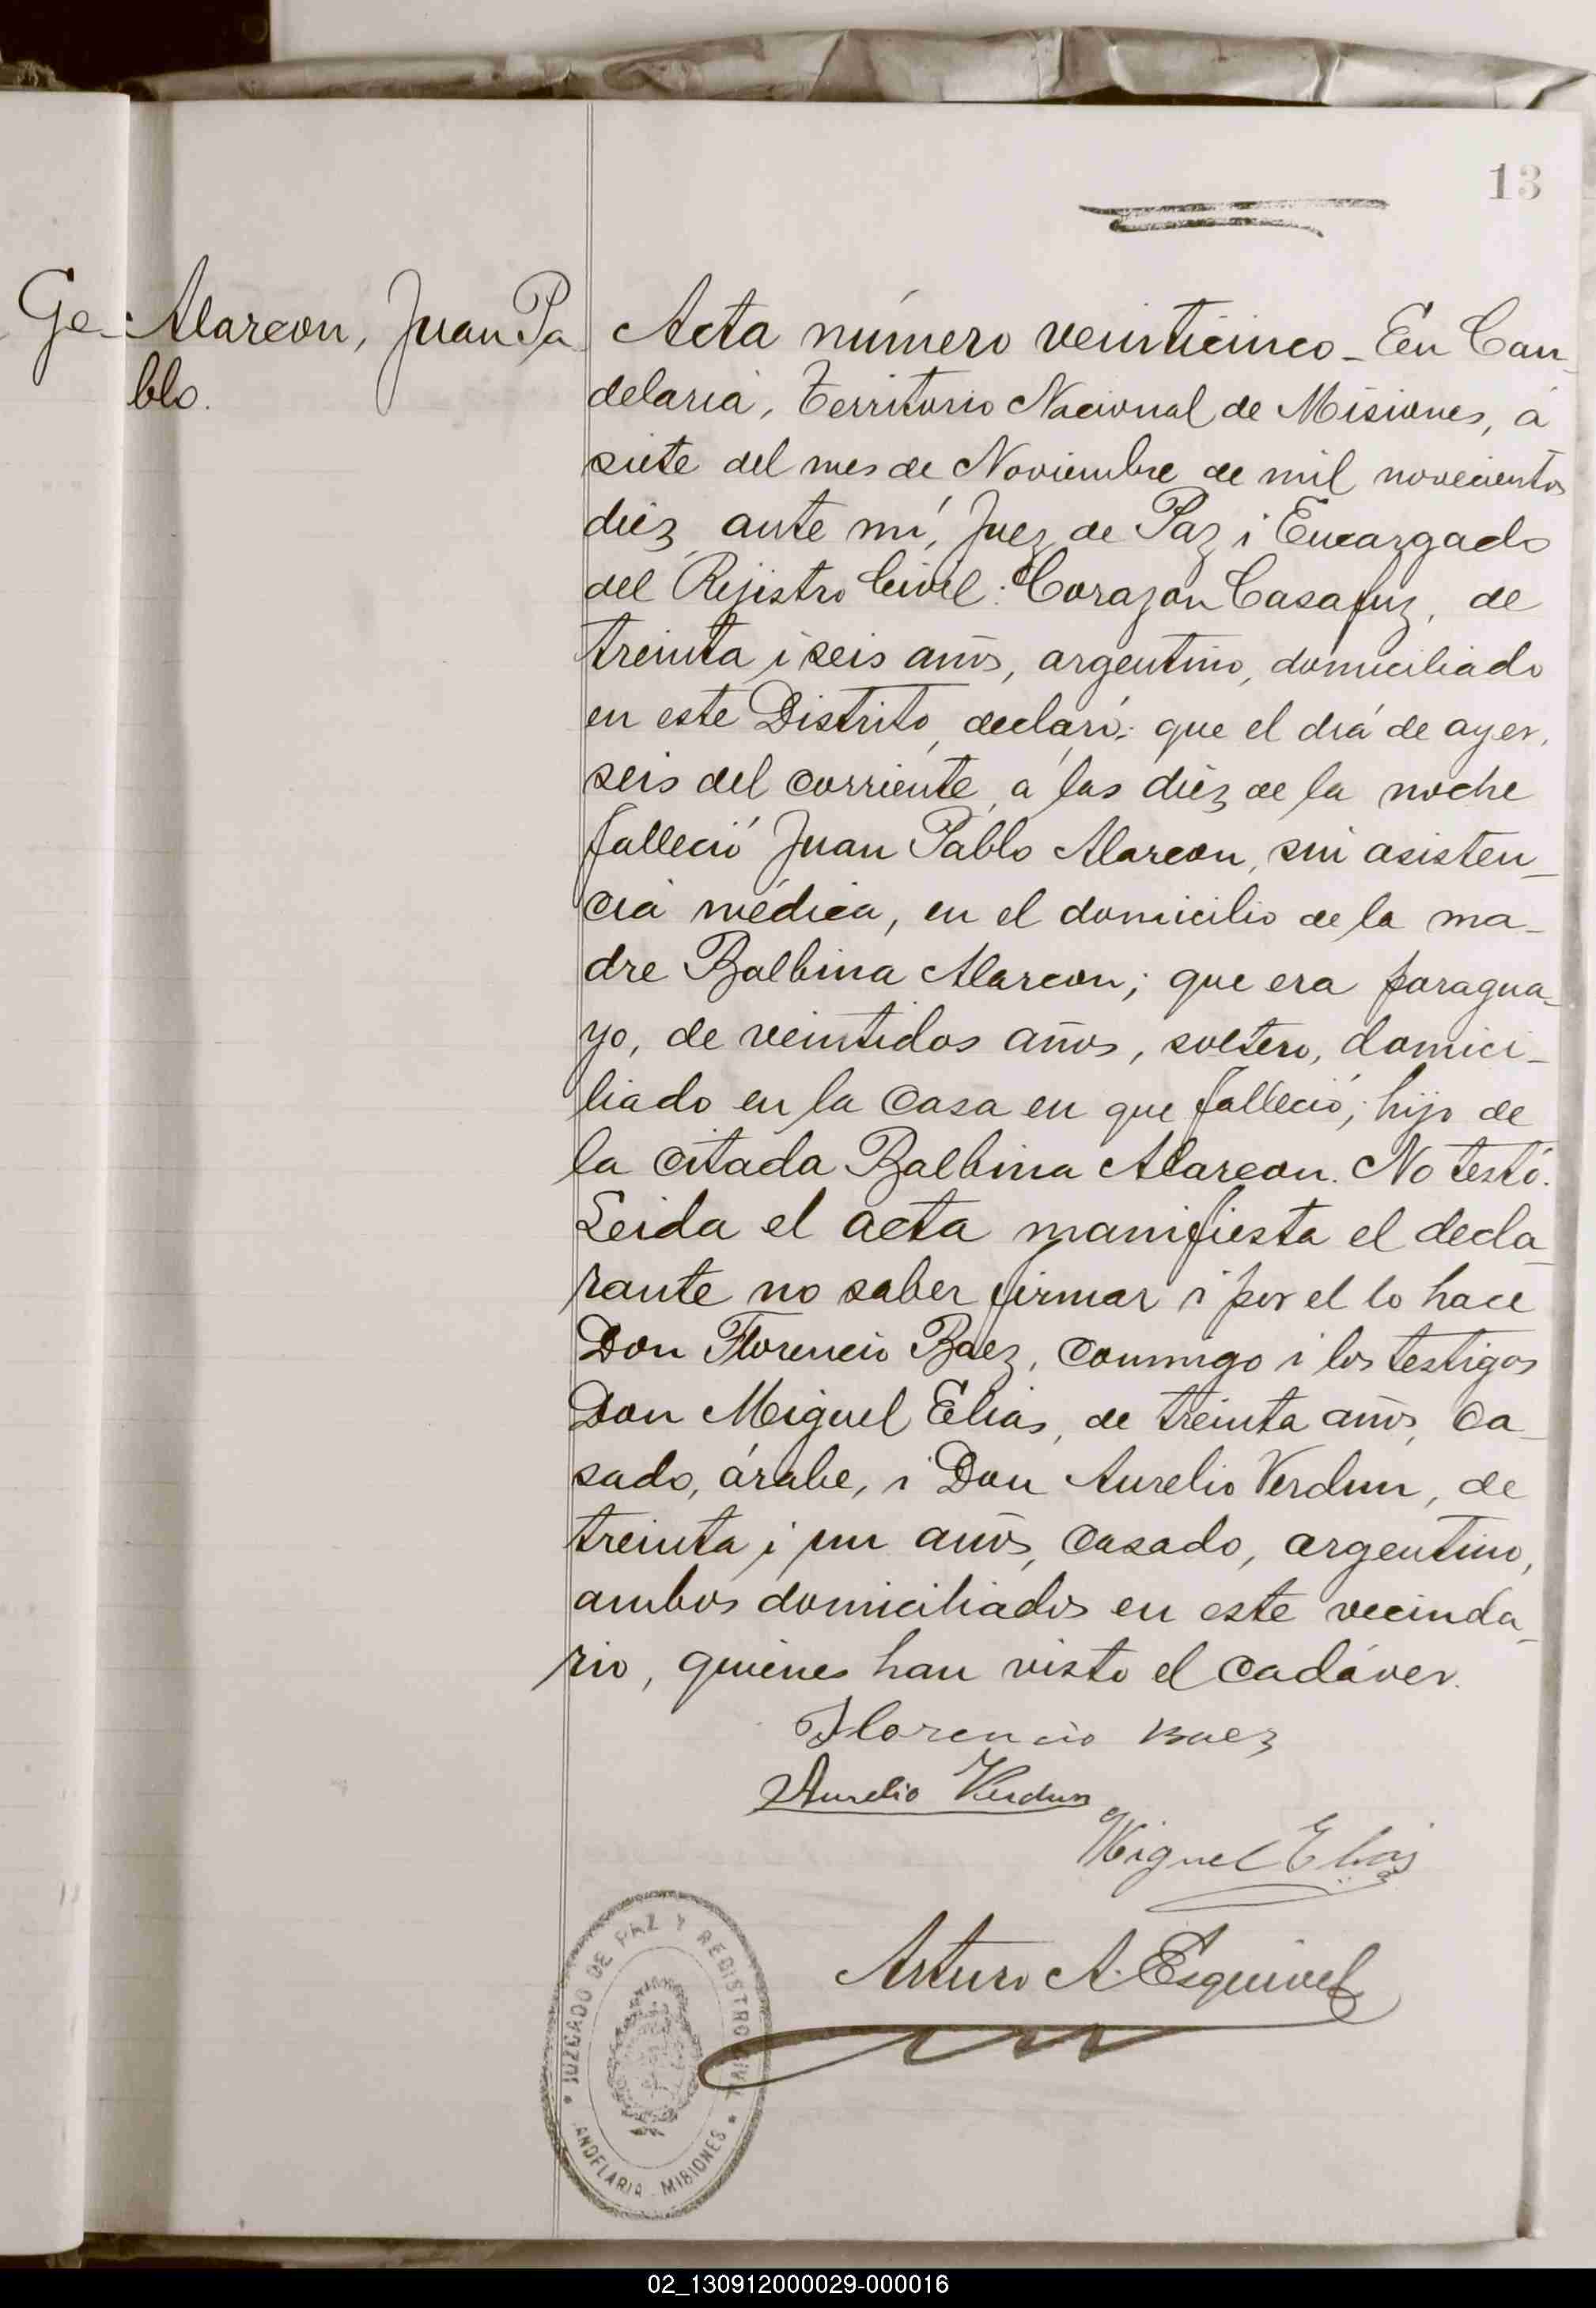 13
Ge-
Alarcon, Juan Pa
blo.
Acta número veinticinco - En Can-
delaria, Territorio Nacional de Misiones, á
siete del mes de Noviembre de mil novecientos
diéz, ante mí, Juez de Paz i Encargado
del Rejistro Civil: Corazon Casafuz, de
treinta i seis años, argentino, domiciliado
en este Distrito, declaró: que el día de ayer,
seis del corriente, á las diéz de la noche
falleció Juan Pablo Alarcon, sin asisten-
cia médica, en el domicilio de la ma-
dre Balbina Alarcon; que era paragua-
yo, de veintidos años, soltero, domici-
liado en la casa en que falleció; hijo de
la citada Balbina Alarcon. No testó.
Leida el acta manifiesta el decla-
rante no saber firmar i por el lo hace
Don Florencio Baez, conmigo i los testigos
Don Miguel Elias, de treinta años, ca-
sado, árabe, i Don Aurelio Verdun, de
treinta i un años, casado, argentino,
ambos domiciliados en este vecinda-
rio, quienes han visto el cadáver.
Florencio Baez
Aurelio Verdun
Miguel Elias
Arturo A. Esquivel
JUZGADO DE PAZ Y REGISTRO CIVIL
CANDELARIA - MISIONES
02_130912000029-000016